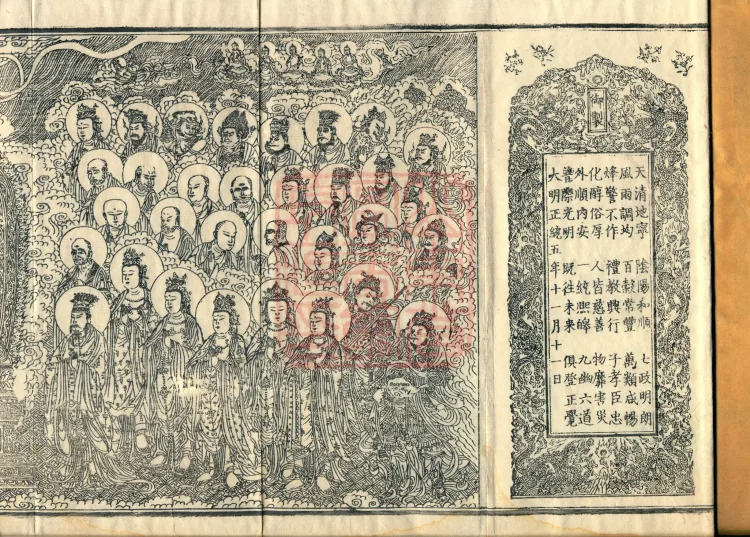 御製
天清地寧 陰陽和順 七政明朗
風雨調均 百穀常豐 萬類咸暢
烽警不作 禮教興行 子孝臣忠
化醇俗厚 人皆慈善 物靡害災
外順內安 一統熈皞 九幽六道
普際光明 既往未來 俱登正覺
大明正統五年十一月十一日